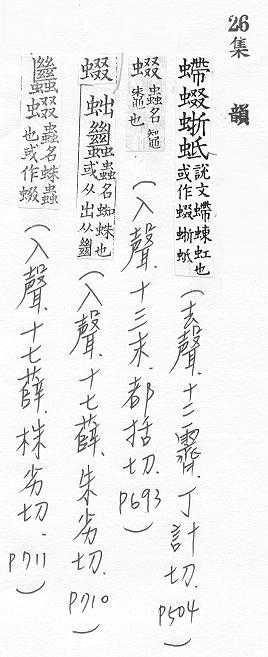 26 集韻
螮蝃蜥蚳 說文螮蝀虹也或作蝃蜥蚳 (去聲.十二霽.丁計切.P504)
蝃 蟲名䵹鼄也 (入聲.十三末.都括切.P693)
蝃䖦蠿 蟲名蜘蛛也或从出从㡭 (入聲.十七薛.朱劣切.P710)
蠿蝃 蟲名蛛蟊也或作蝃 (入聲.十七薛.株劣切.P711)